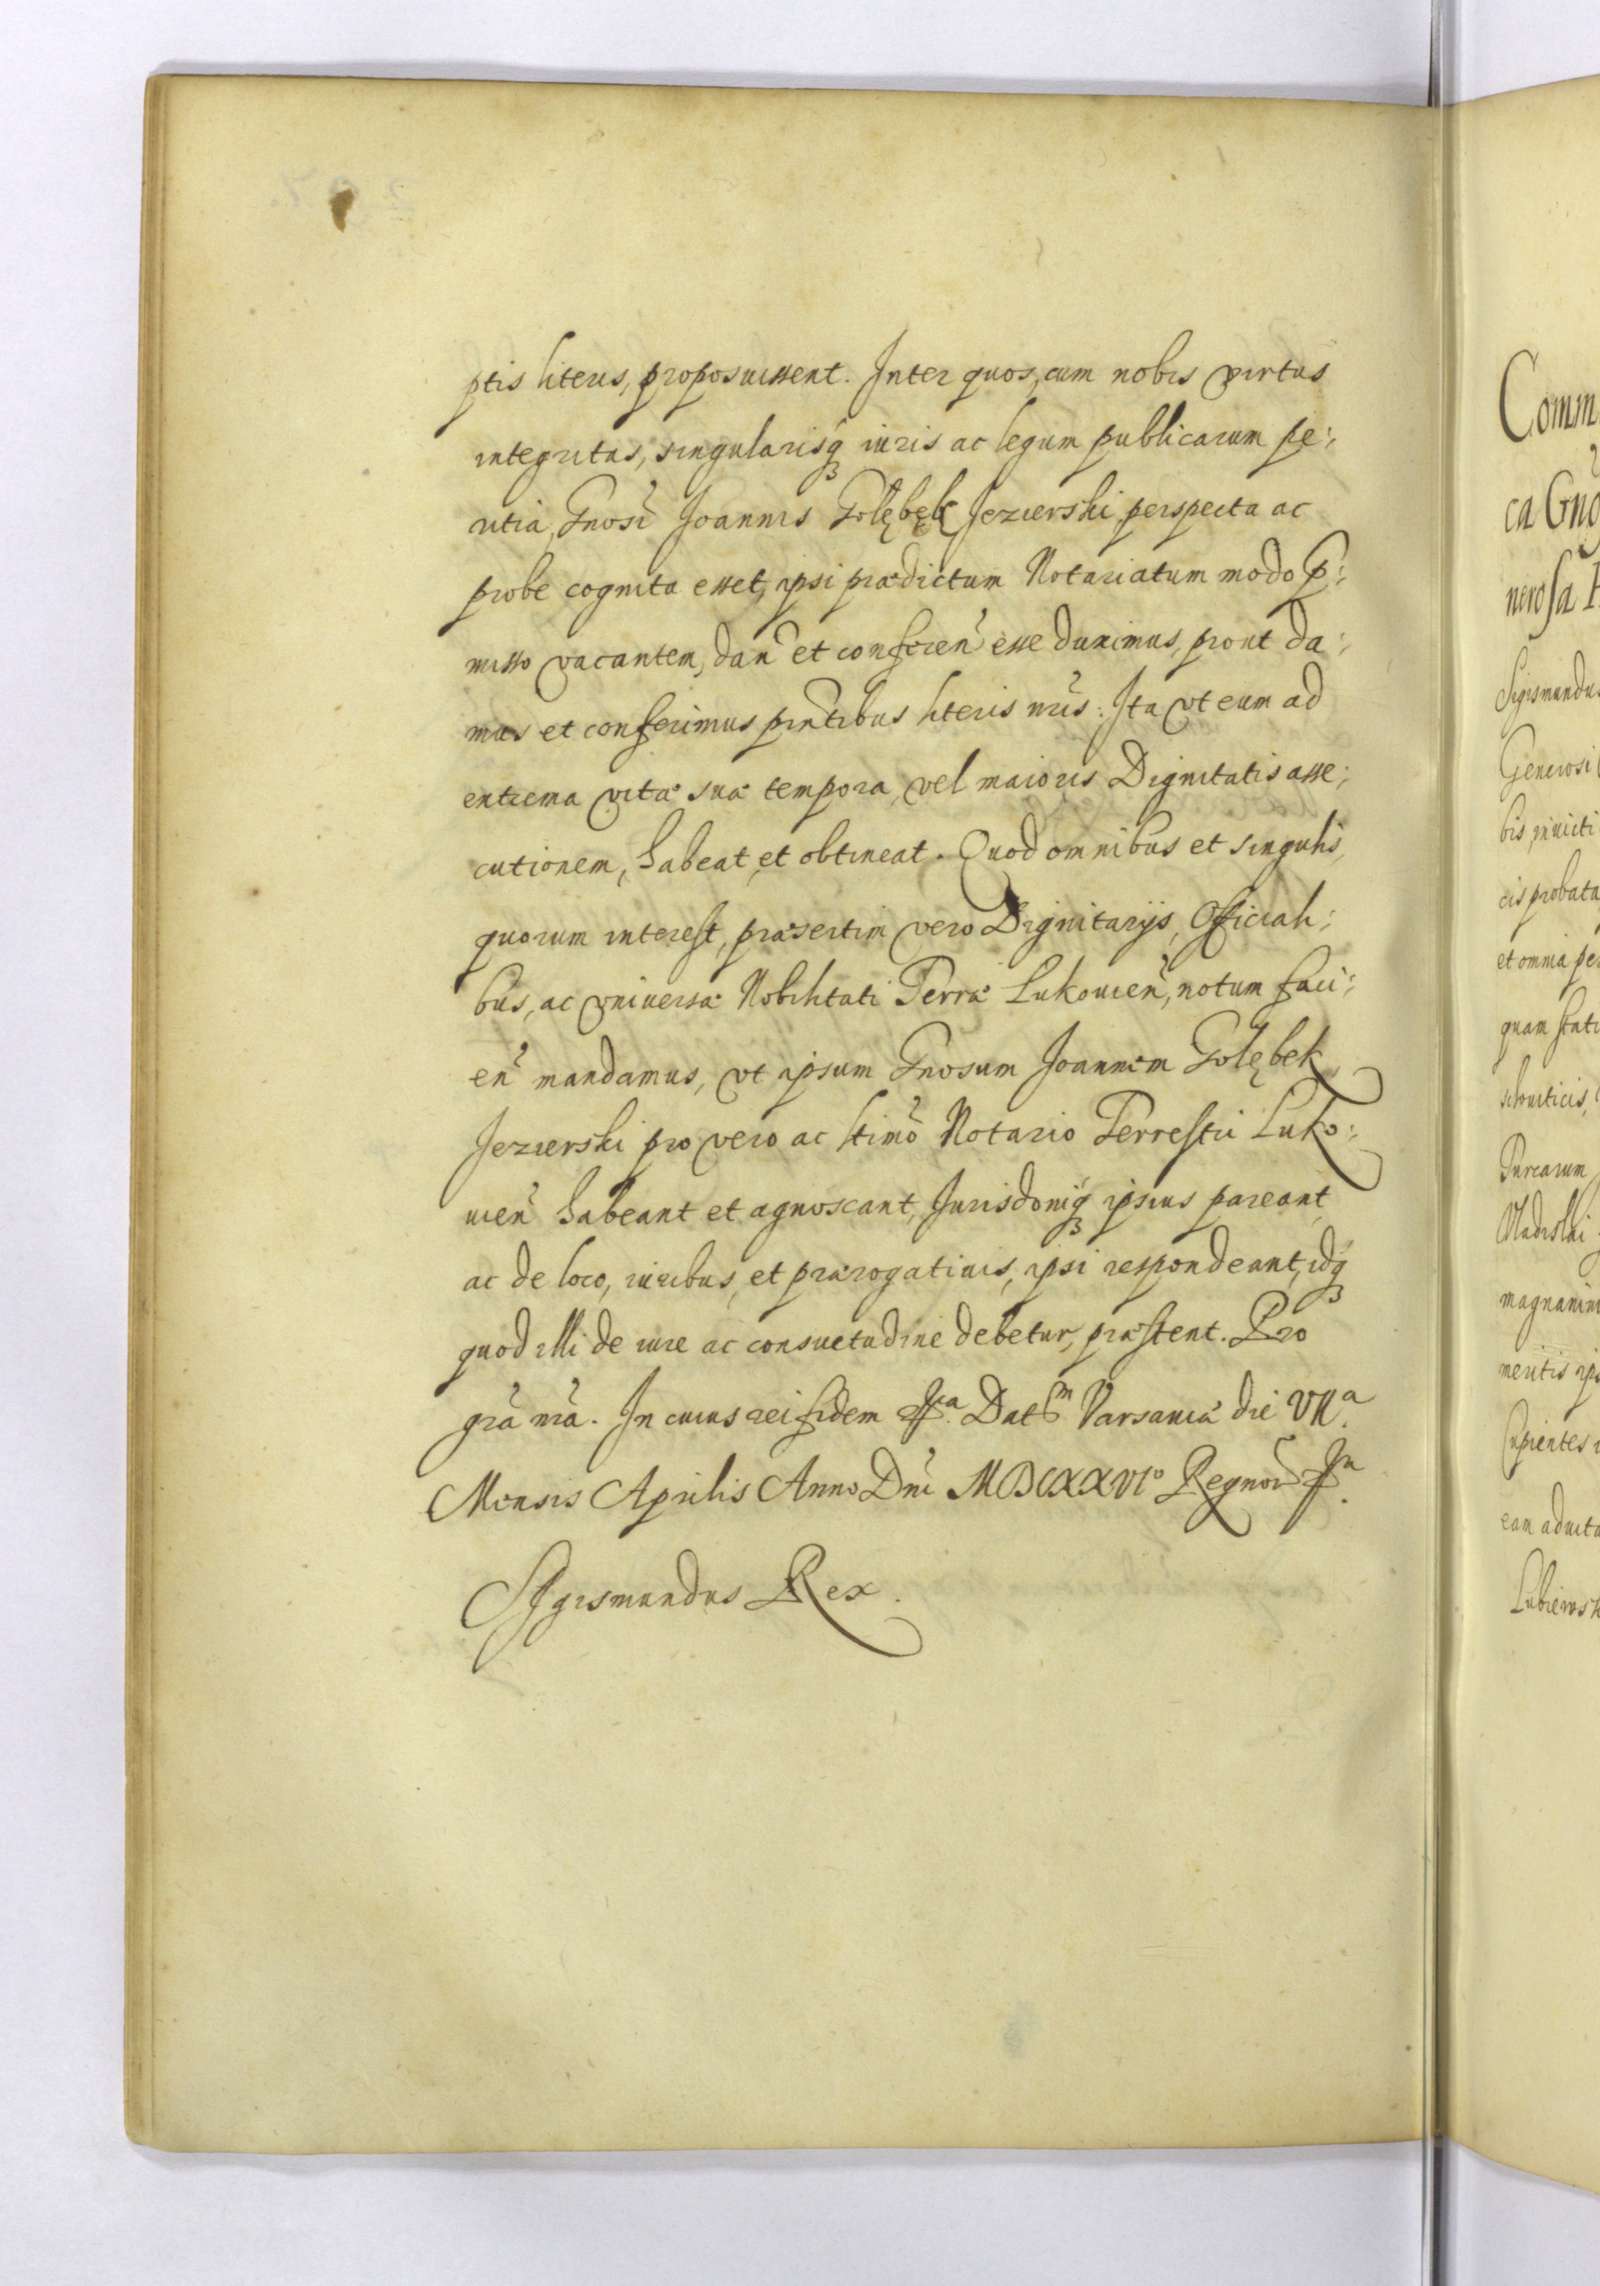 ptis literis, proposuissent. Inter quos, cum nobis virtus
integritas, singularisq₃ iuris ac legum publicarum pe:
ritia, Gnosi Joannis Gołębek Jezierski, perspecta ac
probe cognita esset, ipsi prædictum Notariatum modo p:
misso vacantem, dan et conferen esse duximus, prout da:
mus et conferimus pntibus literis nris: Ita vt eum ad
extrema vitæ suæ tempora, vel maioris Dignitatis asse:
cutionem, habeat, et obtineat. Quod omnibus et singulis,
quorum interest, præsertim vero Dignitarijs, Officiali:
bus, ac vniversæ Nobilitati Terræ Lukouien, notum faci:
en mandamus, vt ipsum Gnosum Joannem Gołębek
Jezierski pro vero ac ltimo Notario Terrestri Luko:
uien habeant et agnoscant, Jurisdoniq₃ ipsius pareant
ac de loco, iuribus, et prærogatiuis, ipsi respondeant, idq₃
quod illi de iure ac consuetudine debetur, præstent. Pro
gra nra. In cuius rei fidem Datm Varsauiæ die VIIa.
Mensis Aprilis Anno Dni MDCXXVIo Regnor
Sigismundus Rex.
Comm
ca Gno
nerosa
Sigismundus
Generosi
bis, inuicti
cis probata
et omnia pe
quam stati
schouiticis,
Turcarum
Vladislai
magnanim
meritis ips
Cupientes
eam aduita
Lubiensk